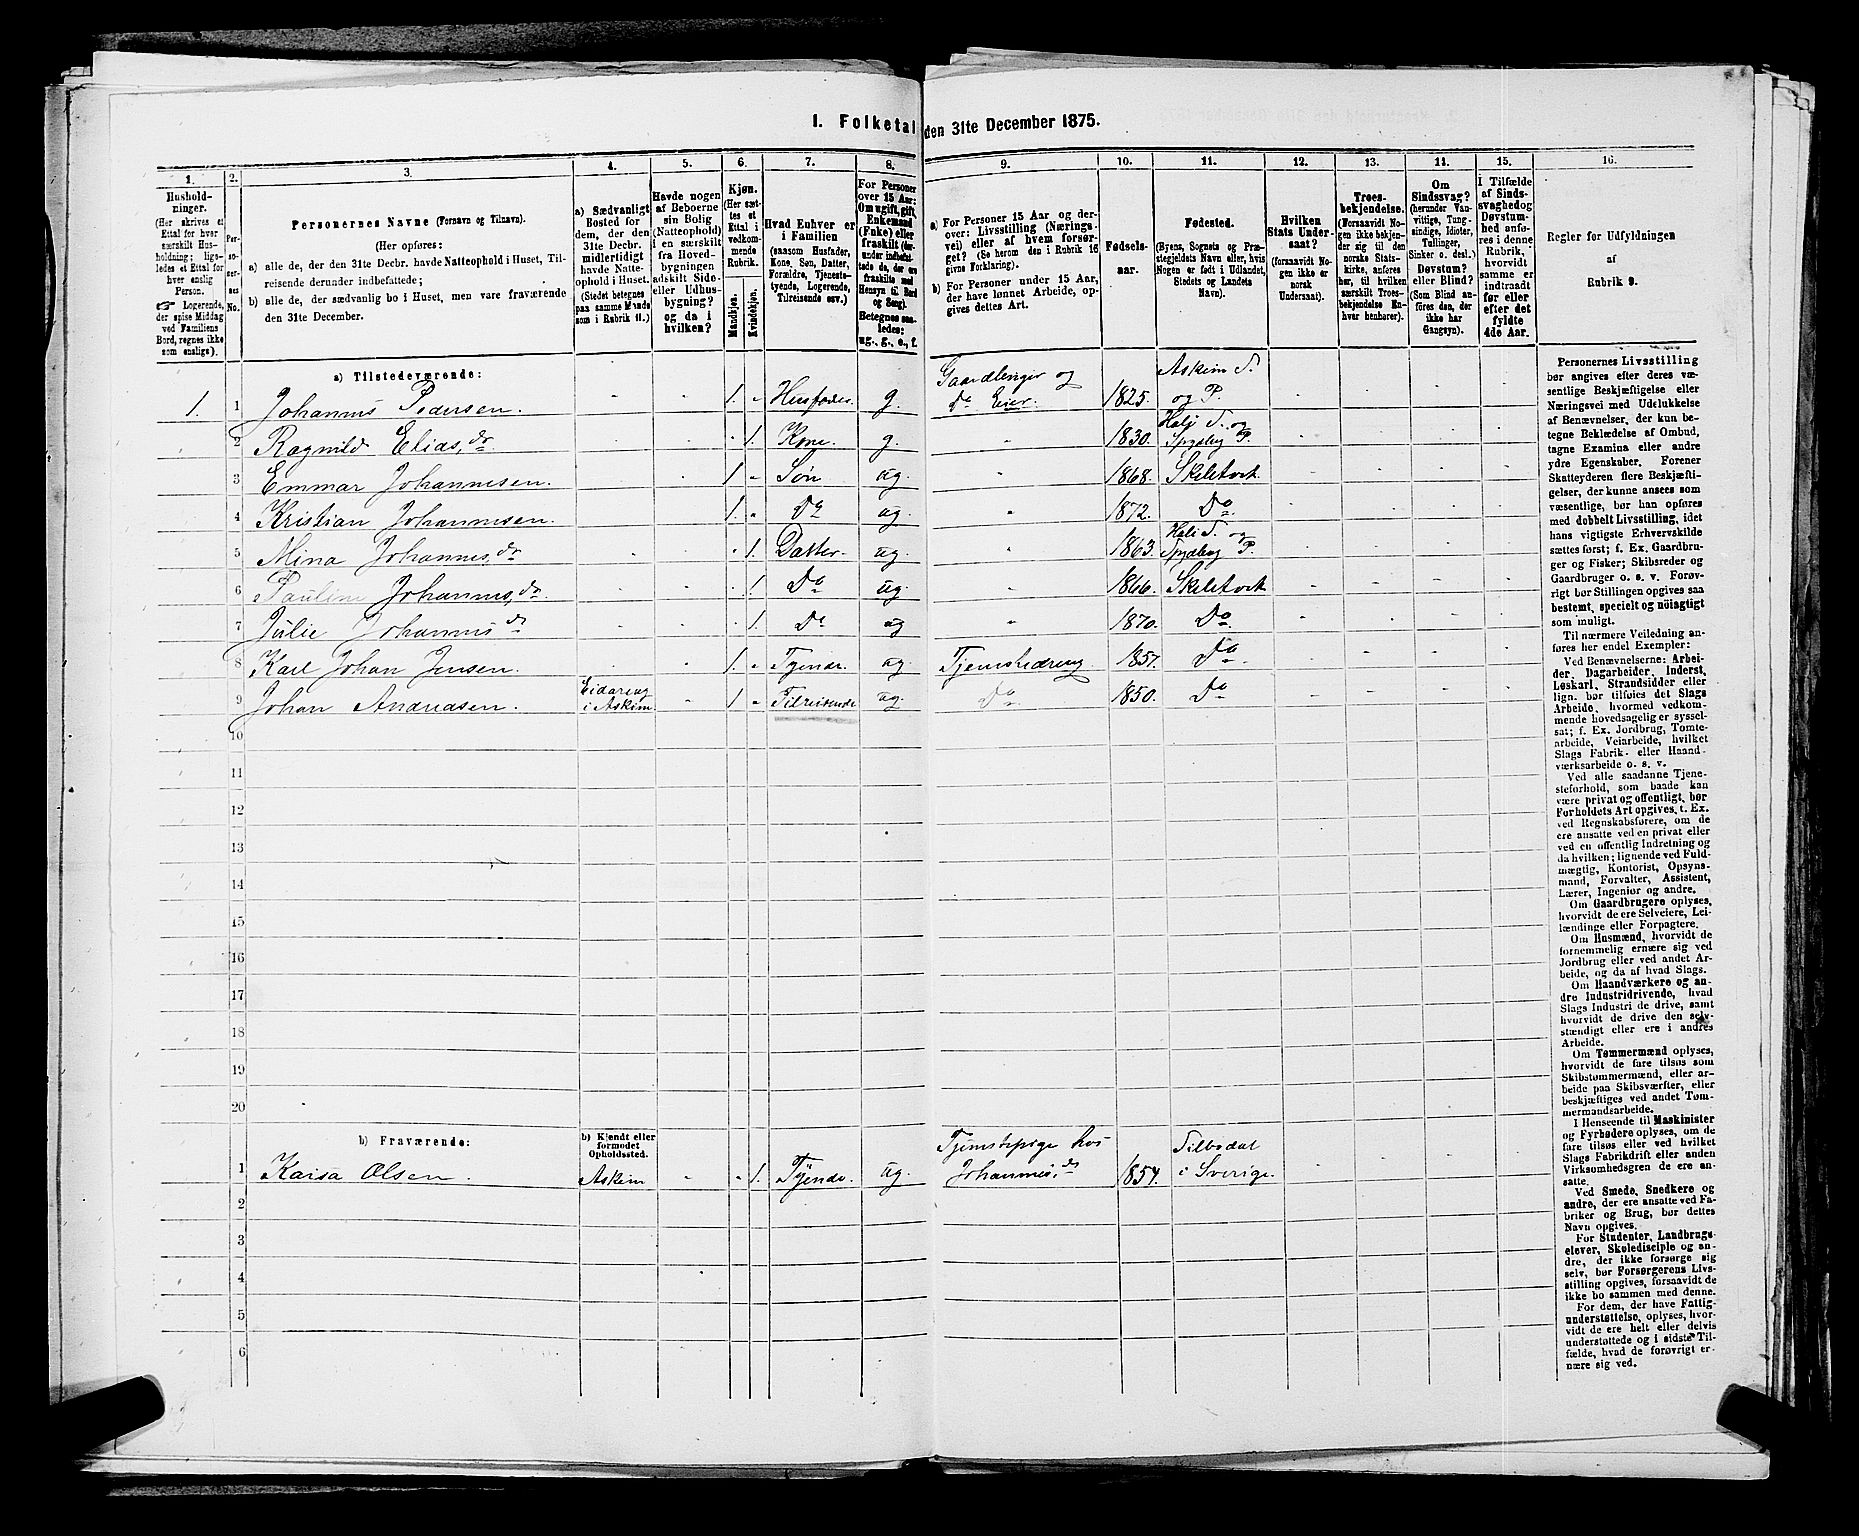 1. Folketal den 31te December 1875.
1. 2. 3. 4. 5. 6. 7. 8. 9. 10. 11. 12. 13. 14. 15. 16.
Hushold-
ninger.
(Her skrives et
Ettal for hver
særskilt Hus-
holdning; lige-
ledes et Ettal for
hver enslig
Person.
☞ Logerende,
der spise Middag
ved Familiens
Bord, regnes ikke
som enslige).
Per-
so-
ner-
nes
No.
Personernes Navne (Fornavn og Tilnavn).
(Her opføres:
a) alle de, der den 31te Decbr. havde Natteophold i Huset, Til-
reisende derunder indbefattede;
b) alle de, der sædvanlig bo i Huset, men vare fraværende
den 31te December.
a) Sædvanligt
Bosted for
dem, der den
31te Decbr.
midlertidigt
havde Natte-
ophold i Huset.
(Stedet betegnes
paa samme Maade
som i Rubrik 11.)
Havde nogen
af Beboerne
sin Bolig
(Natteophold)
i en særskilt
fra Hoved-
bygningen
adskilt Side-
eller Udhus-
bygning?
og da i
hvilken?
Kjøn.
(Her sæt-
tes et
Ettal i
vedkom-
mende
Rubrik.
Mandkjøn.
Kvindekjøn.
Hvad Enhver er
i Familien
(saasom Husfader,
Kone, Søn, Datter,
Forældre, Tjeneste-
tyende, Logerende,
Tilreisende osv.)
For Personer
over 15 Aar:
Om ugift, gift,
Enkemand
(Enke) eller
fraskilt (her-
under indbefat-
tede de, der ere
fraskilte med
Hensyn til Bord
og Seng).
Betegnes saa-
ledes:
ug., g., e., f.
a) For Personer 15 Aar og der-
over: Livsstilling (Nærings-
vei) eller af hvem forsør-
get? (Se herom den i Rubrik 16
givne Forklaring).
b) For Personer under 15 Aar,
der have lønnet Arbeide, op-
gives dettes Art.
Fødsels-
aar.
Fødested.
(Byens, Sognets og Præ-
stegjeldets Navn eller, hvis
Nogen er født i Udlandet,
Stedets og Landets
Navn).
Hvilken
Stats Under-
saat?
(foraavidt No-
gen ikke er
norsk
Undersaat).
Troes-
bekjendelse.
(Foraavidt No-
gen ikke bekjen-
der sig til den
norske Stats-
kirke, anføres
her, til hvilken
særskilt Troes-
bekjendelse En-
hver henhører).
Om
Sindssvag?
(herunder Van-
vittige, Tung-
sindige, Idioter,
Tullinger,
Sinker o. desl.)
Døvstum?
eller Blind?
(Som Blind an-
føres den, der
ikke har
Gangsyn).
I Tilfælde
af Sinds-
svaghed og
Døvstum-
hed anfø-
res i denne
Rubrik,
hvorvidt
samme er
indtraadt
før eller
efter det
fyldte
4de Aar.
Regler for Udfyldningen
af
Rubrik 9.
a) Tilstedeværende:
1. 1 Johannes Pedersen. 1. Husfader. g. Gaardbruger og do Eier. 1825. Askim S. og P.
2 Ragnild Elias.dr 1. Kone. g. 1830. Spydeberg P.
3 Emmar Johannesen. 1 Søn ug. 1868. Skibtvet.
4 Kristian Johannesen. 1. Do ug. 1872. Do.
5 Mina Johannes.dr 1. Datter. ug. 1863. Spydeberg P.
6 Pauline Johannes.dr. 1. Do ug. 1866. Skibtvet
7 Julie Johannes dr 1. Do ug 1870. Do.
8 Karl Johan Jensen. 1. Tyende. ug. Tjenestedreng. 1857. Do
9 Johan Andreasen. i Askim 1 Tilreisende ug. Do. 1850. Do
10
11
12
13
14
15
16
17
18
19
20
b) Fraværende:
b) Kjendt eller
formodet
Opholdssted.
1 Kaisa Olsen. Askim 1. Tyende. ug. Tjenestepige hos Johannes.dr 1854. i Sverige.
2
3
4
5
6
Personernes Livsstilling
bør angives efter deres væ-
sentlige Beskjæftigelse eller
Næringsvei med Udelukkelse
af Benævnelser, der kun be-
tegne Beklædelse af Ombud,
tagne Examina eller andre
ydre Egenskaber. Forener
Skatteyderen flere Beskjæfti-
gelser, der kunne ansees som
væsentlige, bør han opføres
med dobbelt Livsstilling, idet
hans vigtigste Erhvervskilde
sættes først; f. Ex. Gaardbru-
ger og Fisker; Skibsreder og
Gaardbruger o. s. v. Forøv-
rigt bør Stillingen opgives saa
bestemt, specielt og nøiagtigt
som muligt.
Til nærmere Veiledning an-
føres her endel Exempler:
Ved Benævnelserne: Arbei-
der, Dagarbeider, Inderst,
Løskarl, Strandsidder eller
lign. bør tilføies det Slags
Arbeide, hvormed vedkom-
mende hovedsagelig er syssel-
sat; f. Ex. Jordbrug, Tomte-
arbeide, Veiarbeide, hvilket
Slags Fabrik- eller Haand-
værksarbeide o. s. v.
Ved alle saadanne Tjene-
steforhold, som baade kan
være privat og offentligt, bør
Forholdets Art opgives, t. Ex.
ved Regnskabsførere, om de
ere ansatte ved en privat eller
ved en offentlig Indretning og
da hvilken; lignende ved Fuld-
mægtig, Kontorist, Opsyns-
mand, Forvalter, Assistent,
Lærer, Ingeniør og andre.
Om Gaardbrugere oplyses,
hvorvidt de ere Selveiere, Lei-
lændinge eller Forpagtere.
Om Husmænd, hvorvidt de
fornemmelig ernære sig ved
Jordbrug eller ved andet Ar-
beide, og da af hvad Slags.
Om Haandværkere og an-
dre Industridrivende, hvad
Slags Industri de drive, samt
hvorvidt de drive den selv-
stændigt eller ere i andres
Arbeide.
Om Tømmermænd oplyses,
hvorvidt de fare tilsøs som
Skibstømmermænd, eller ar-
beide paa Skibsværfter, eller
beskjæftiges ved andet Tøm-
mermandsarbeide.
I Henseende til Maskinister
og Fyrbødere oplyses, om de
fare tilsøs eller ved hvilket
Slags Fabrikdrift eller anden
Virksomhedsgren de ere an-
satte.
Ved Smede, Snedkere og
andre, der ere ansatte ved Fa-
briker og Brug, bør dettes
Navn opgives.
For Studenter, Landbrugs-
elever, Skoledisciple og an-
dre, der ikke forsørge sig
selv, bør Forsørgerens Livs-
stilling opgives, forsaavidt de
ikke bo sammen med denne.
For dem, der have Fattig-
understøttelse, oplyses, hvor-
vidt de ere helt eller delvis
understøttede og i sidste Til-
fælde, hvad de forøvrigt er-
nære sig ved.